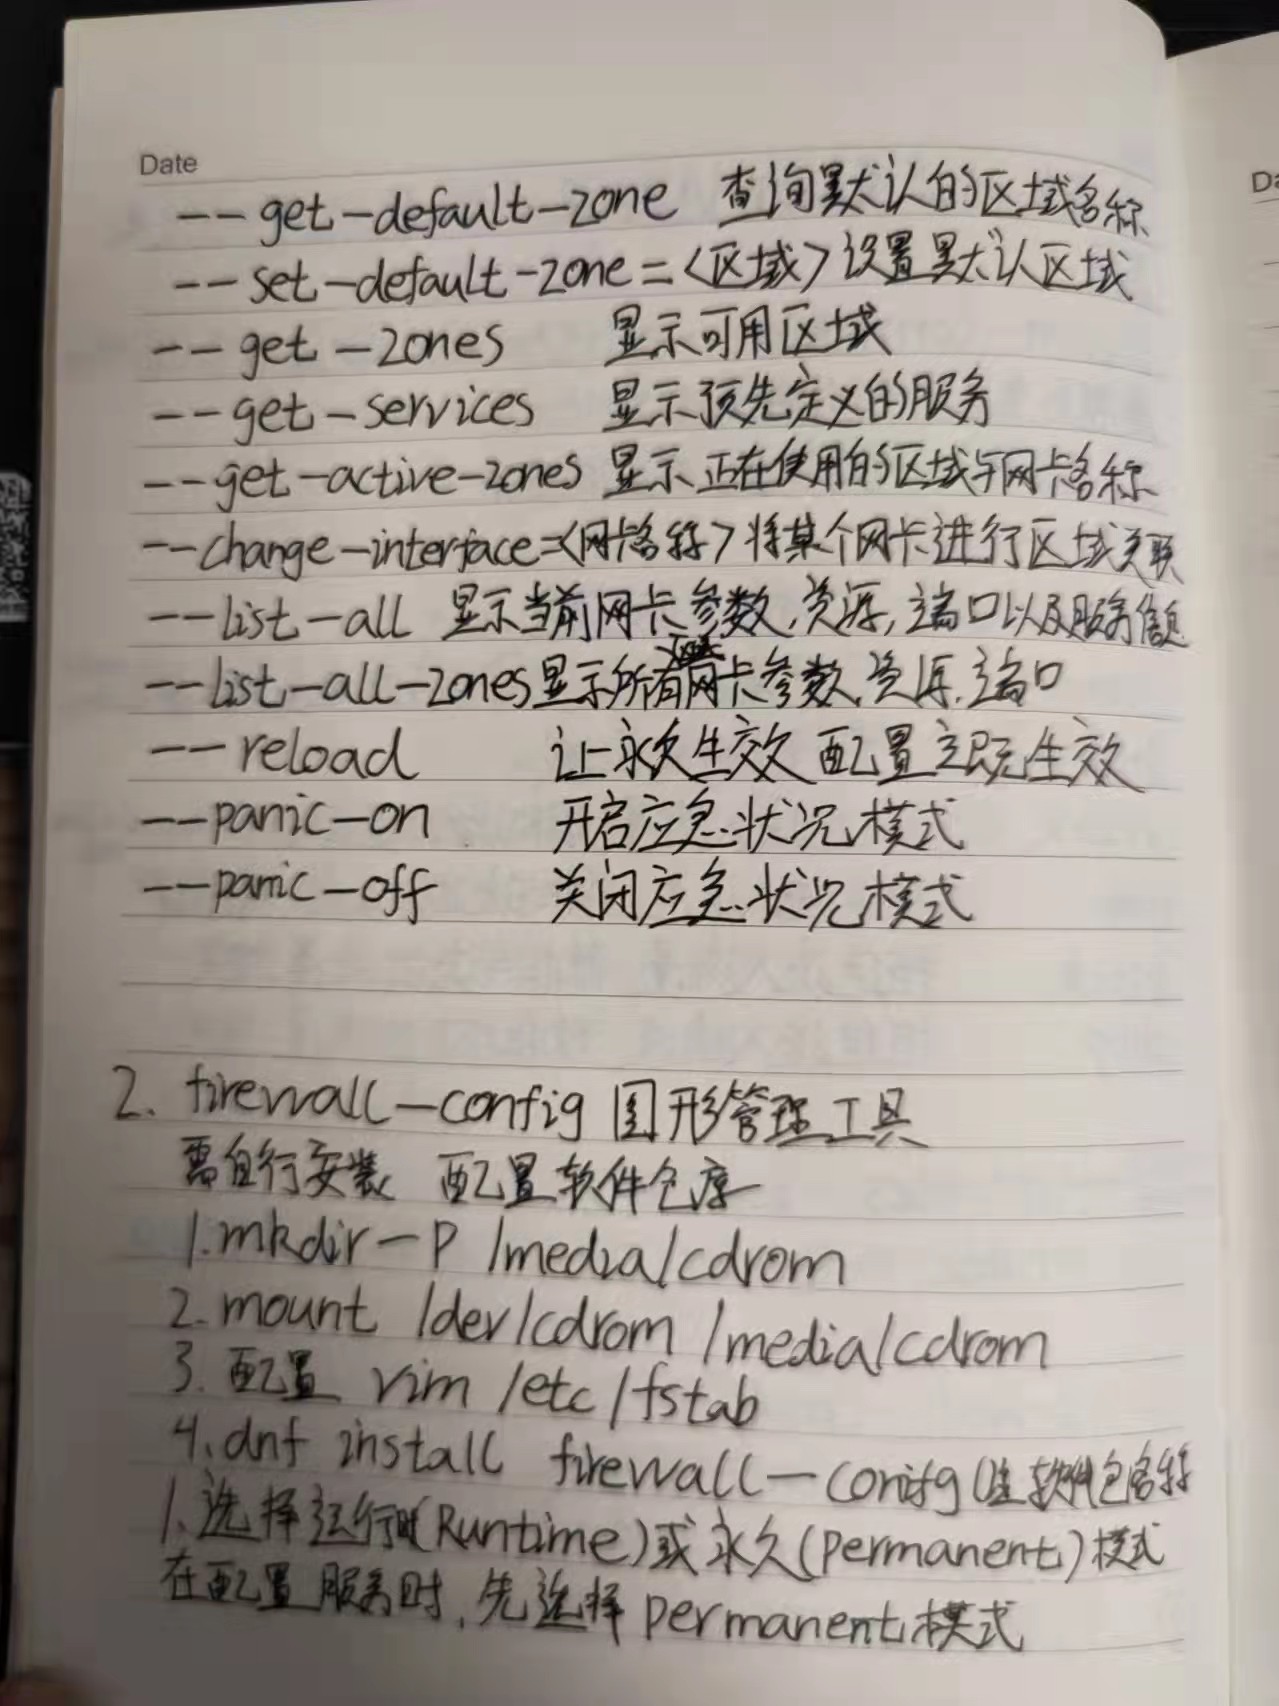 Date
--get-default-zone 查询默认的区域名称
--set-default-zone=<区域>设置默认区域
--get-zones 显示可用区域
--get-services 显示预先定义的服务
--get-active-zones 显示正在使用的区域与网卡名称
--change-interface=<网卡名称>将某个网卡进行区域关联
--list-all 显示当前网卡参数,资源,端口以及服务信息
--list-all-zones显示所有网卡参数,资源,端口
--reload 让永久生效配置立既生效
--panic-on 开启应急状况模式
--panic-off 关闭应急状况模式
2. firewall-config 图形管理工具
需自行安装 配置软件仓库
1.mkdir-P /media/cdrom
2.mount /dev/cdrom /media/cdrom
3.配置 vim /etc/fstab
4.dnf install firewall-config 软件包名称
1.选择运行时(Runtime)或永久(permanent)模式
在配置服务时,先选择permanent模式